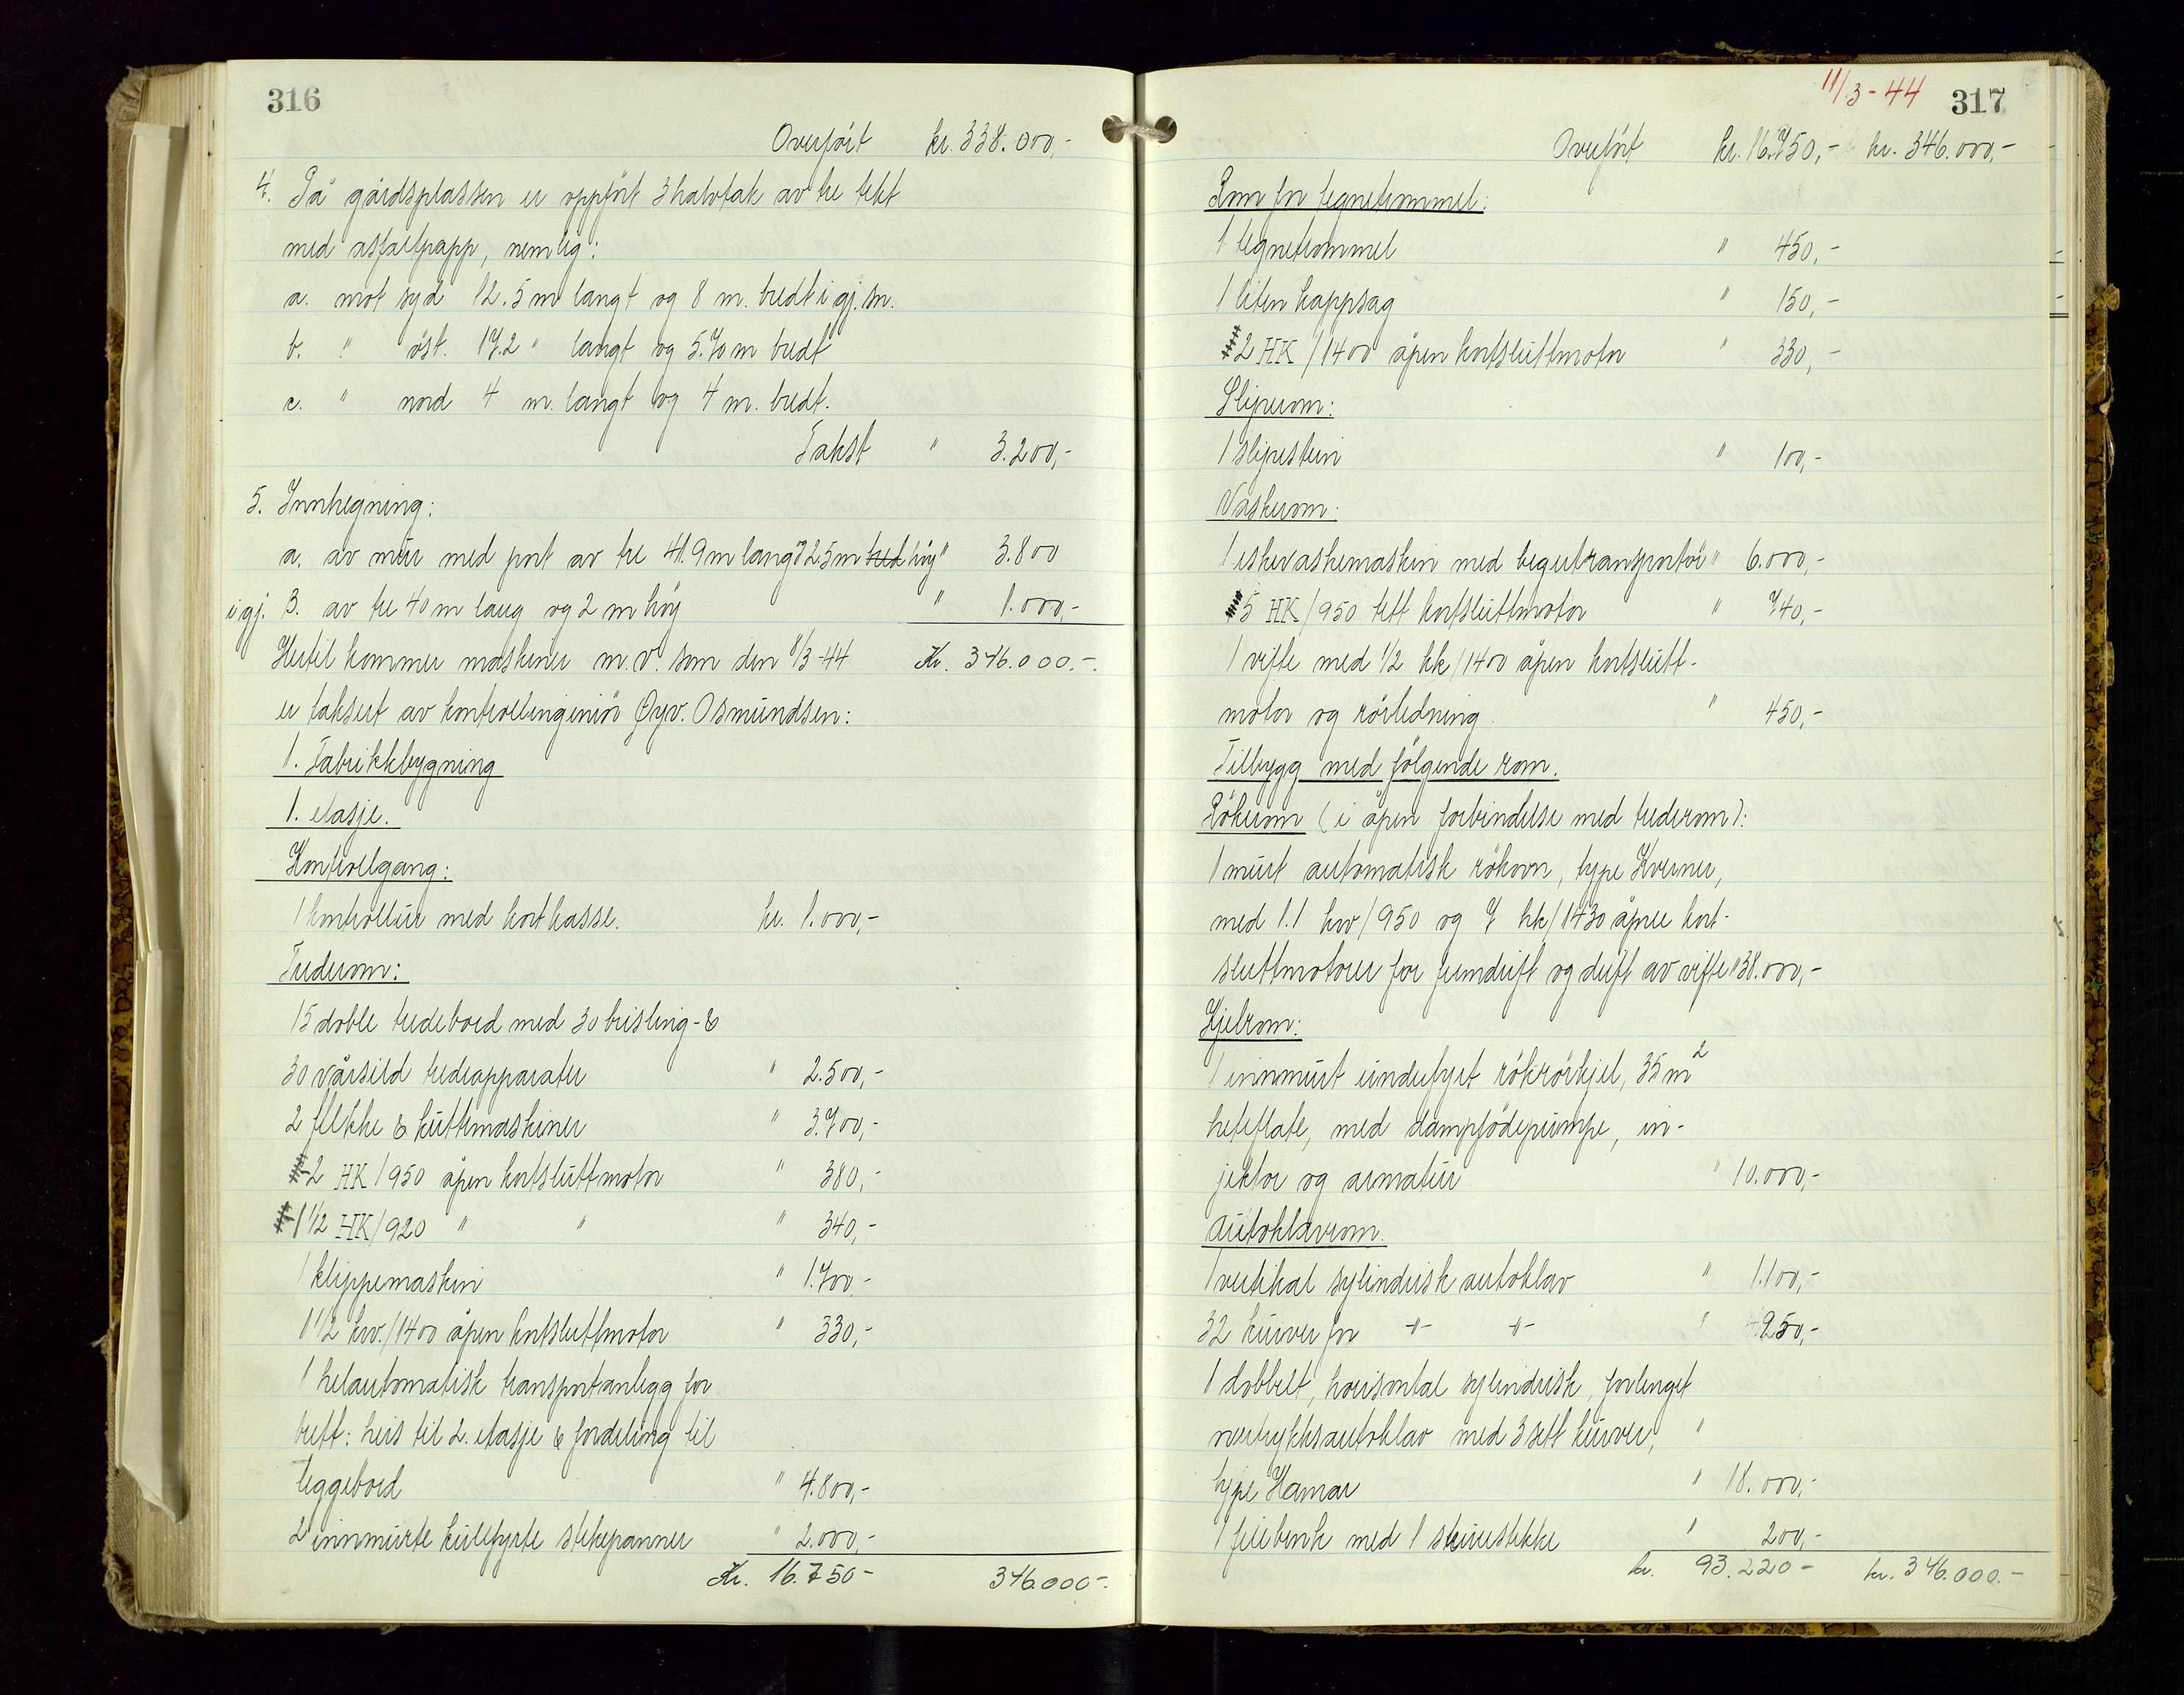 316
Overført kr. 338.000,-
4. På gårdsplassen er oppført 3 halvtak av tre tekt
med asfaltpapp, nemlig:
a. mot syd 12.5 m langt og 8 m. bredt i gj.sn.
b. " øst. 17.2 " langt og 5.70 m bredt
c. " nord 4 m. langt og 4 m. bredt.
Takst " 3.200,-
5. Innhegning:
a. av mur med port av tre 41.9 m lang og 2.5 m bred høy " 3.800
i gj. B. av tre 40 m lang og 2 m høy " 1.000,-
Hertil kommer maskiner m.v. som den 8/3-44 Kr. 346.000.-.
er taksert av kontrollingeniør Øyv. Osmundsen:
1. Fabrikkbygning
1. etasje.
Kontrollgang:
1 kontrollur med kortkasse. kr. 1.000,-
Trederom:
15 doble tredebord med 30 brisling- &
30 vårsild tredeapparater " 2.500,-
2 flekke & kuttemaskiner " 3.700,-
2 HK/950 åpen kortsluttmotor " 380,-
1 1/2 HK/920 " " " 340,-
1 klippemaskin " 1.700,-
1 1/2 kw./1400 åpen kortsluttmotor " 330,-
1 helautomatisk transportanlegg for
brett: heis til 2. etasje & fordeling til
leggebord " 4.800,-
2 innmurte kullfyrte stekepanner " 2.000,-
Kr. 16.750- 346.000-.
11/3-44 317
Overført kr. 16.750,- kr. 346.000,-
Rom for tegnetrommel:
1 tegnetrommel " 450,-
1 liten kappsag " 150,-
2 HK/1400 åpen kortsluttmotor " 330,-
Sliperom:
1 slipestein " 100,-
Vaskerom:
1 eskevaskemaskin med begertransportør " 6.000,-
5 HK/950 tett kortsluttmotor " 740,-
1 vifte med 1/2 hk/1400 åpen kortslutt-
motor og rørledning " 450,-
Tilbygg med følgende rom.
Røkerom (i åpen forbindelse med trederom):
1 murt automatisk røkovn, type Kverner,
med 1.1 kw/950 og 7 hk/1430 åpne kort-
sluttmotorer for fremdrift og drift av vifte " 38.000,-
Kjelrom:
1 innmurt underfyrt røkrørkjel, 35 m2
heteflate, med dampfødepumpe, in-
jektor og armatur " 10.000,-
Autoklavrom.
1 vertikal sylindrisk autoklav " 1.100,-
32 kurver for -"- -"- " 950,-
1 dobbelt, horisontal sylindrisk, forlenget
overtrykksautoklav med 3 sett kurver, "
type Hamar " 18.000,-
1 filebenk med 1 skruestikke " 200,-
kr. 93.220- kr. 346.000.-